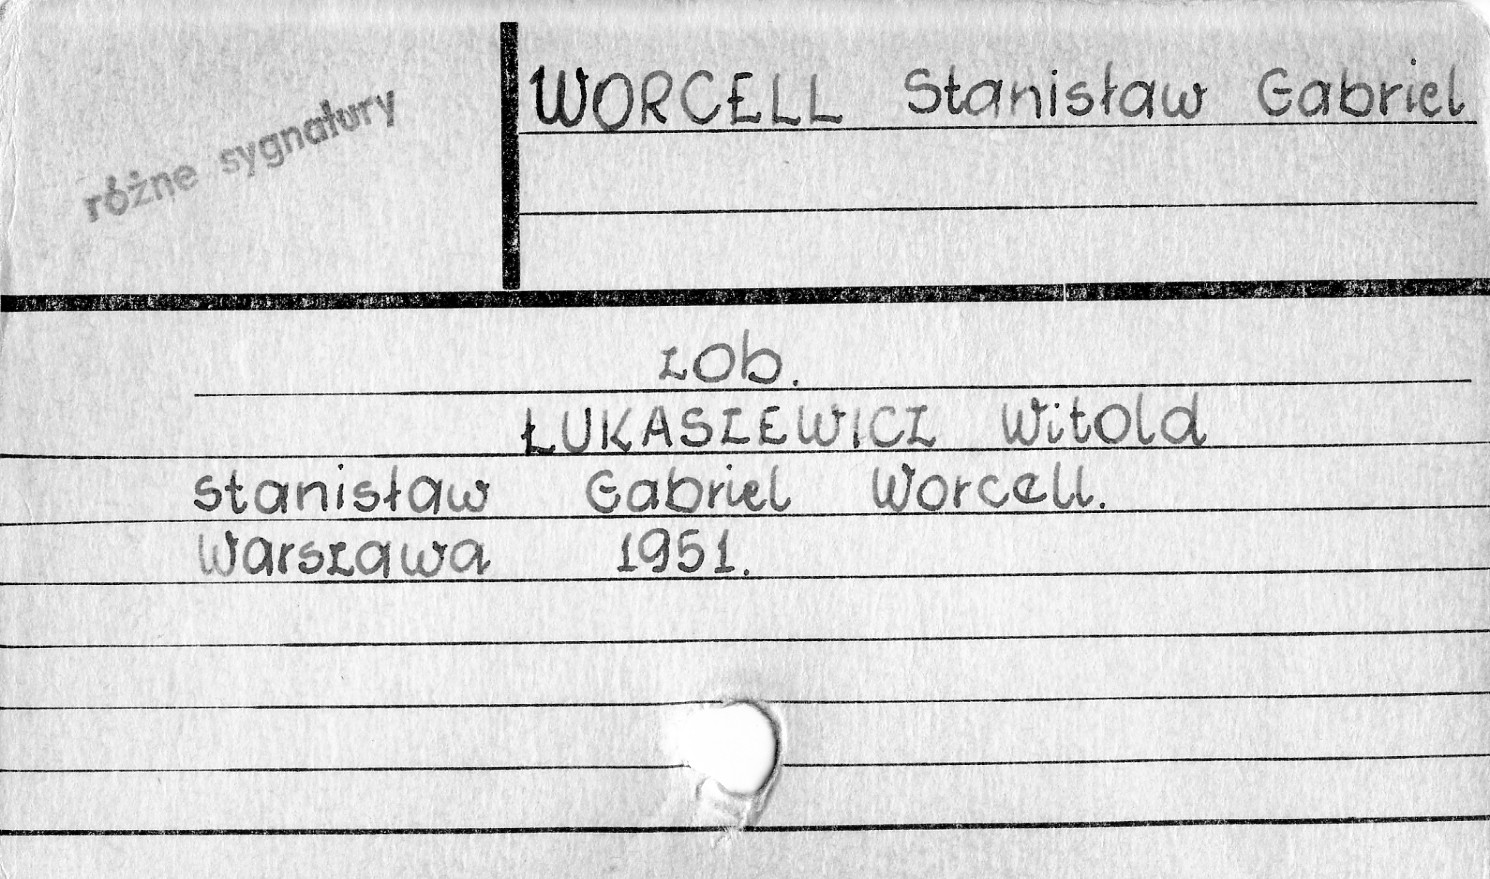 różne sygnatury
WORCELL Stanisław Gabriel
zob.
ŁUKASZEWICZ Witold
Stanisław Gabriel Worcell.
Warszawa 1951.